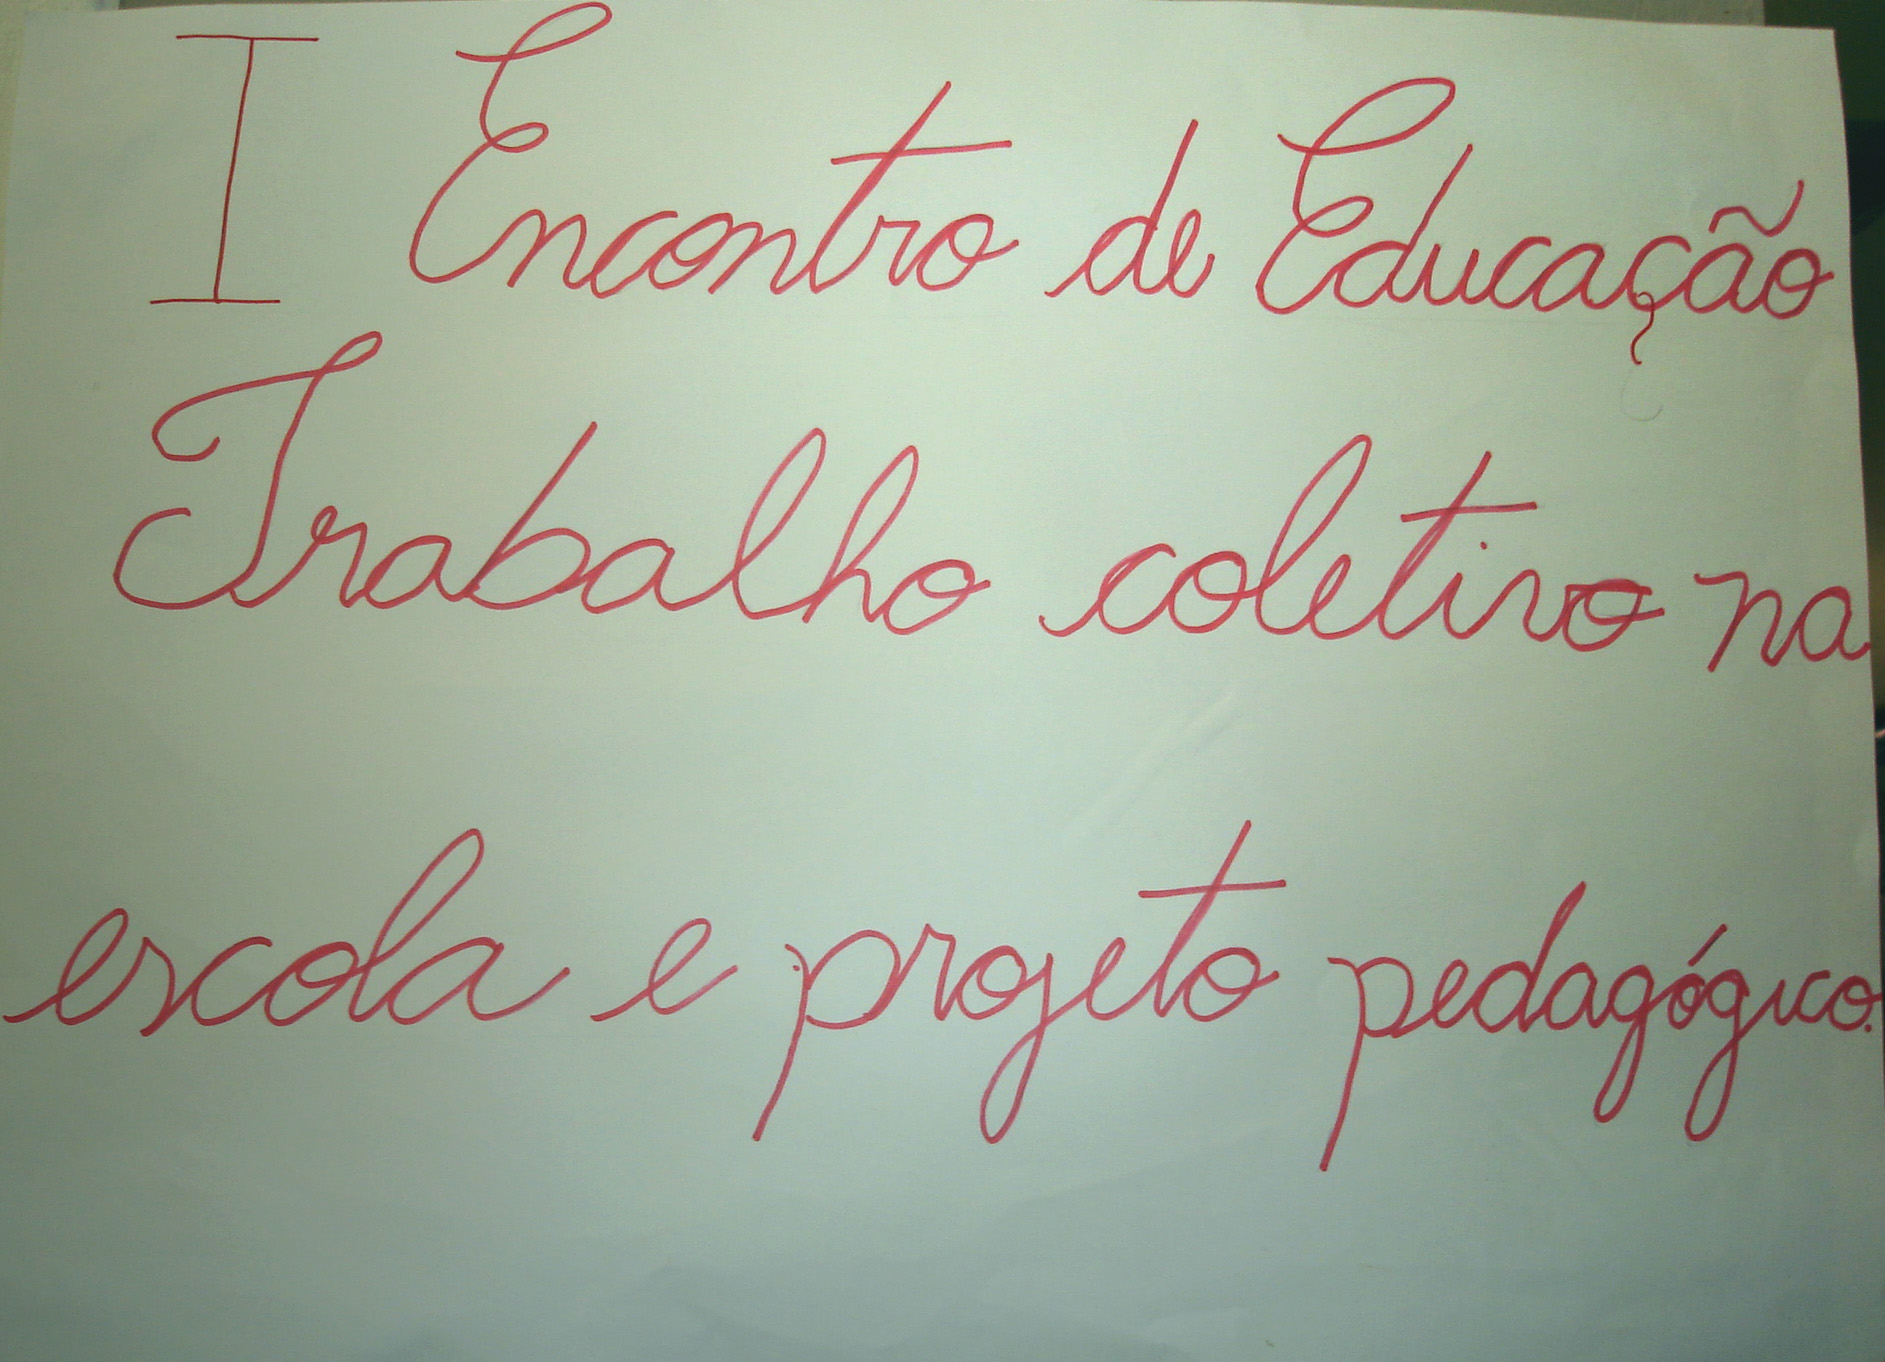 I Encontro de Educação
Trabalho coletivo na
escola e projeto pedagógico.